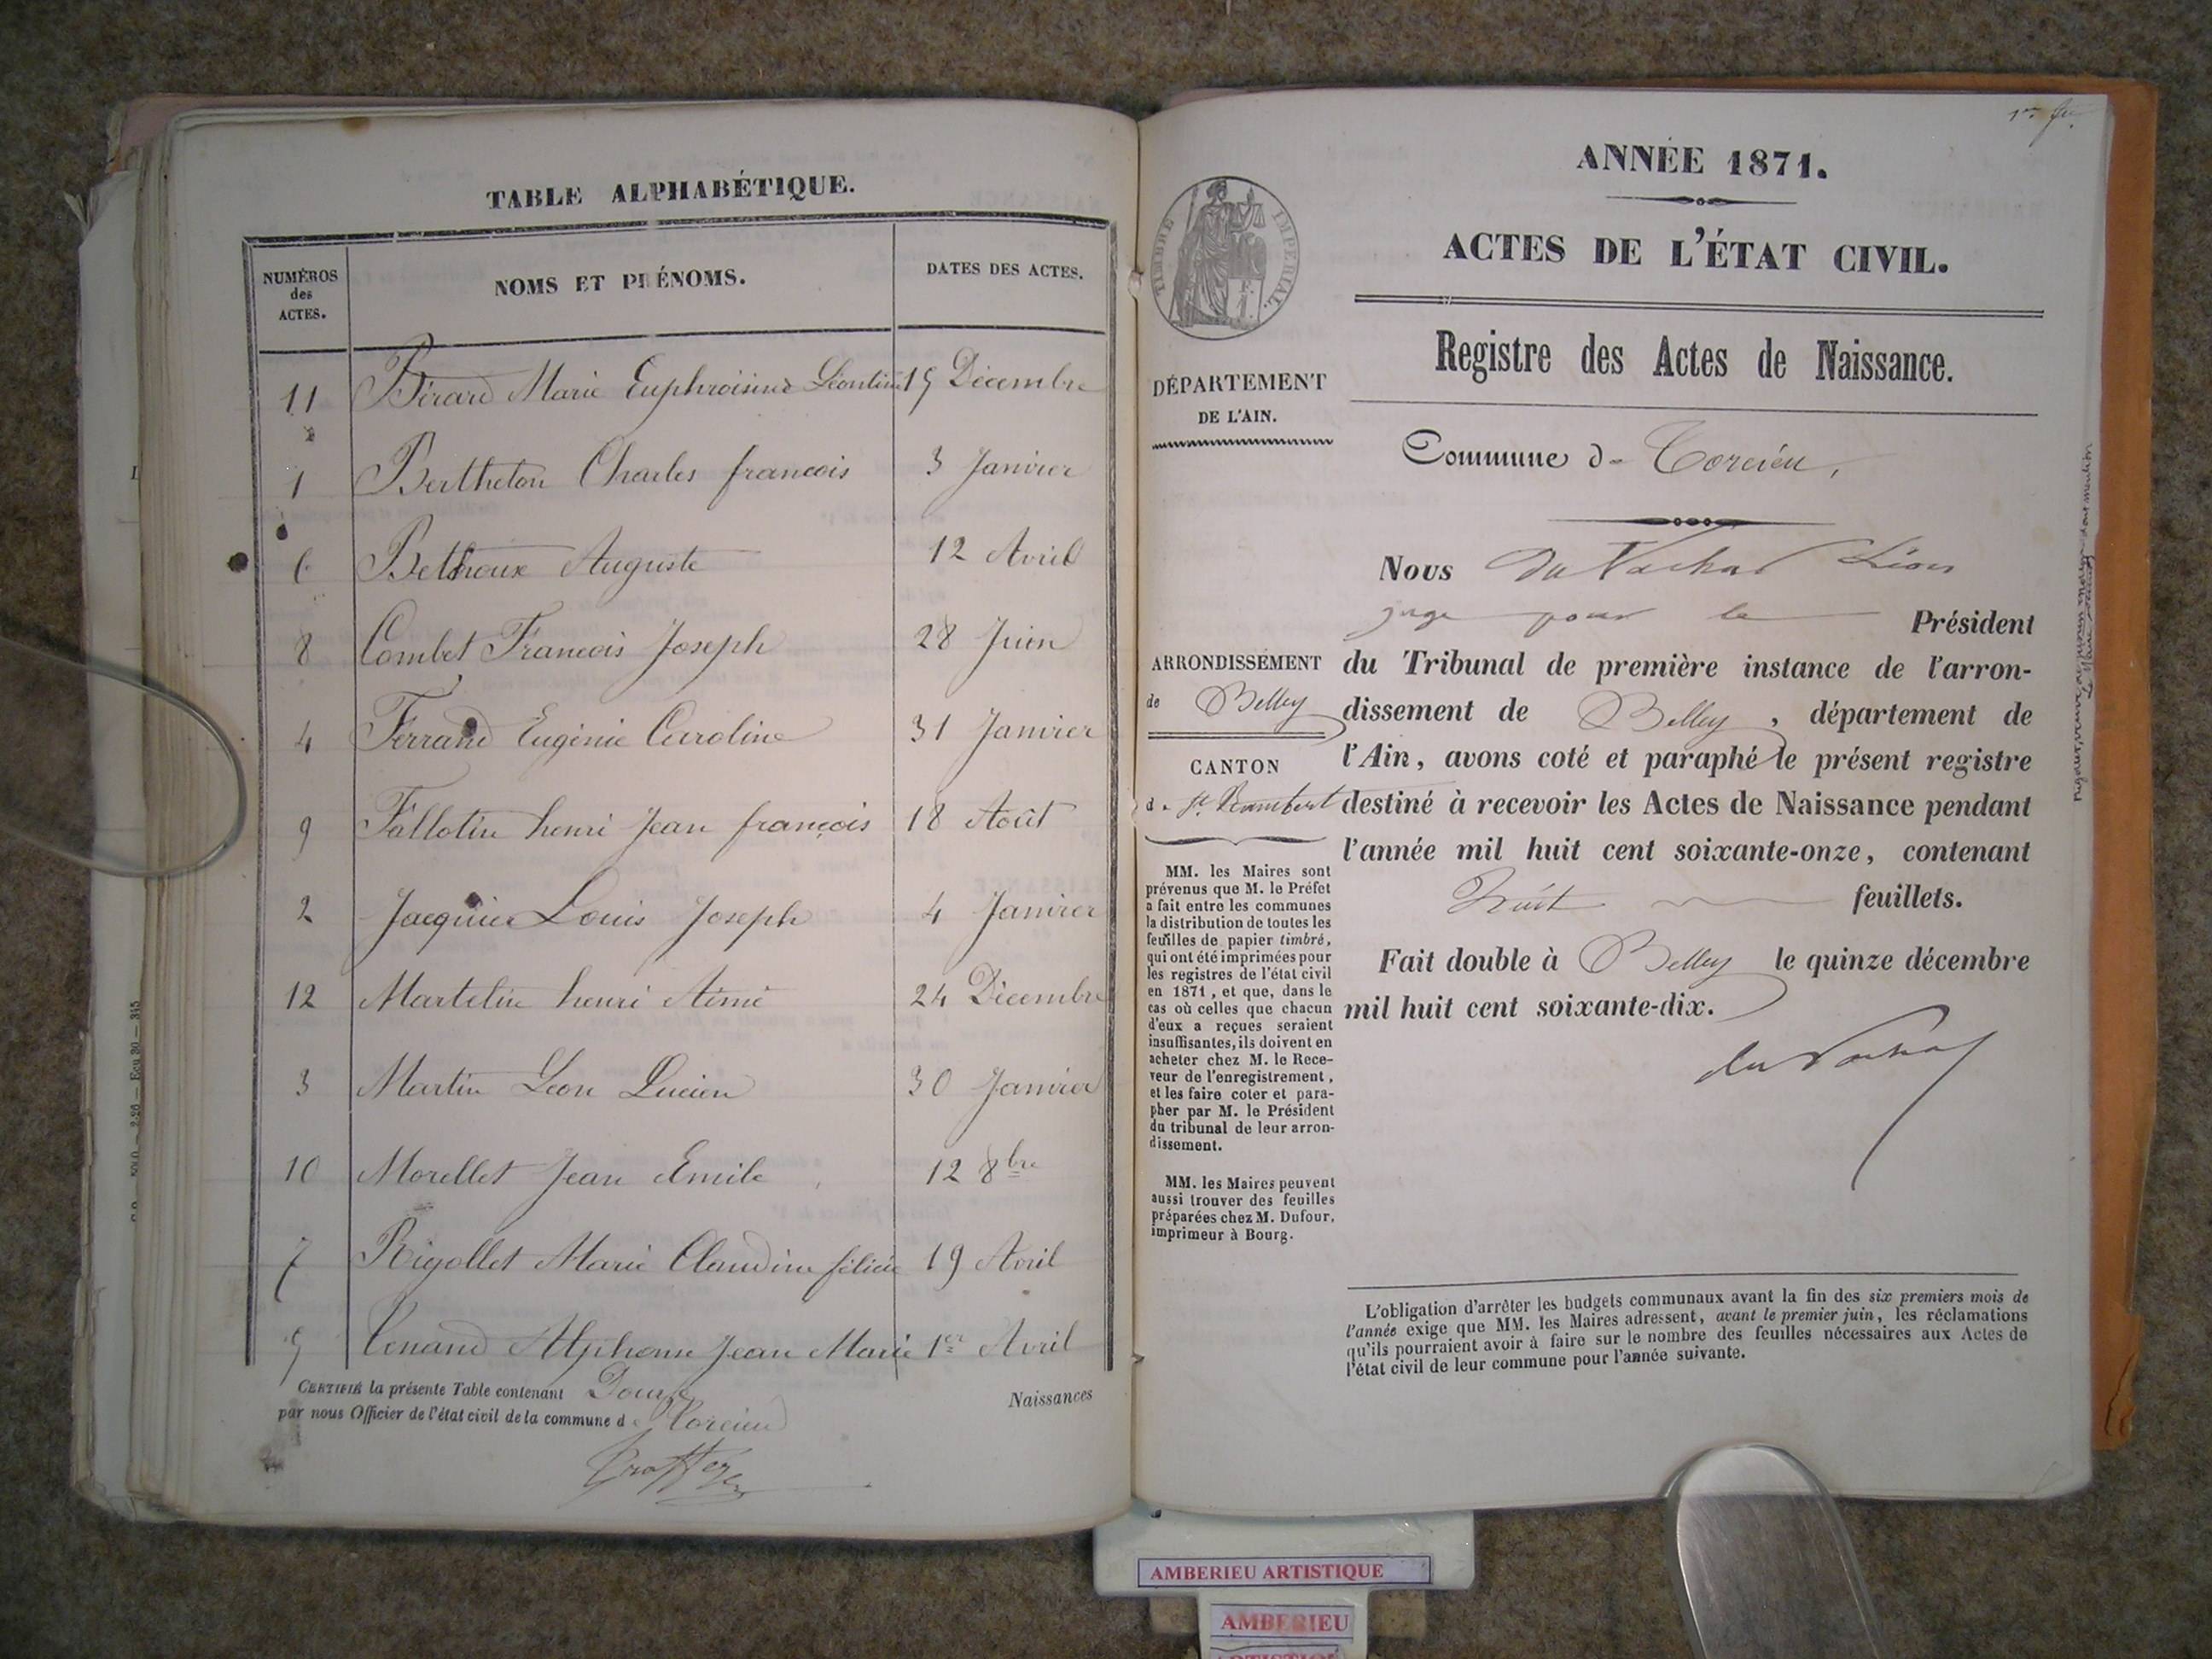 TABLE ALPHABÉTIQUE.
NUMÉROS des ACTES. NOMS ET PRÉNOMS. DATES DES ACTES.
11 Bérard Marie Euphroisine Léontine 15 Décembre
1 Bertheton Charles francois 3 Janvier
6 Bethoux Auguste 12 Avril
8 Combet Francois Joseph 28 Juin
4 Ferrand Eugénie Caroline 31 Janvier
9 Fallotin henri Jean françois 18 Août
2 Jacquier Louis Joseph 4 Janvier
12 Martelin henri Aimé 24 Décembre
3 Martin Leon Lucien 30 Janvier
10 Morellet Jean Emile 12 8bre
7 Rigollet Marie Claudine félicie 19 Avril
5 Tenand Alphonse Jean Marie 1er Avril
CERTIFIÉ la présente Table contenant Douze Naissances
par nous Officier de l'état civil de la commune de Torcieu
1er
ANNÉE 1871.
ACTES DE L'ÉTAT CIVIL.
TIMBRE IMPÉRIAL.
Registre des Actes de Naissance.
DÉPARTEMENT
DE L'AIN.
Commune d- Torcieu,
Nous du Vachat Léon
juge pour le Président
du Tribunal de première instance de l'arron-
dissement de Belley, département de
l'Ain, avons coté et paraphé le présent registre
destiné à recevoir les Actes de Naissance pendant
l'année mil huit cent soixante-onze, contenant
huit feuillets.
Fait double à Belley le quinze décembre
mil huit cent soixante-dix.
du Vachat
ARRONDISSEMENT
de Belley
CANTON
d- St Rambert
MM. les Maires sont
prévenus que M. le Préfet
a fait entre les communes
la distribution de toutes les
feuilles de papier timbré,
qui ont été imprimées pour
les registres de l'état civil
en 1871, et que, dans le
cas où celles que chacun
d'eux a reçues seraient
insuffisantes, ils doivent en
acheter chez M. le Rece-
veur de l'enregistrement,
et les faire coter et para-
pher par M. le Président
du tribunal de leur arron-
dissement.
MM. les Maires peuvent
aussi trouver des feuilles
préparées chez M. Dufour,
imprimeur à Bourg.
L'obligation d'arrêter les budgets communaux avant la fin des six premiers mois de
l'année exige que MM. les Maires adressent, avant le premier juin, les réclamations
qu'ils pourraient avoir à faire sur le nombre des feuilles nécessaires aux Actes de
l'état civil de leur commune pour l'année suivante.
AMBERIEU ARTISTIQUE
AMBERIEU
ARTISTIQUE